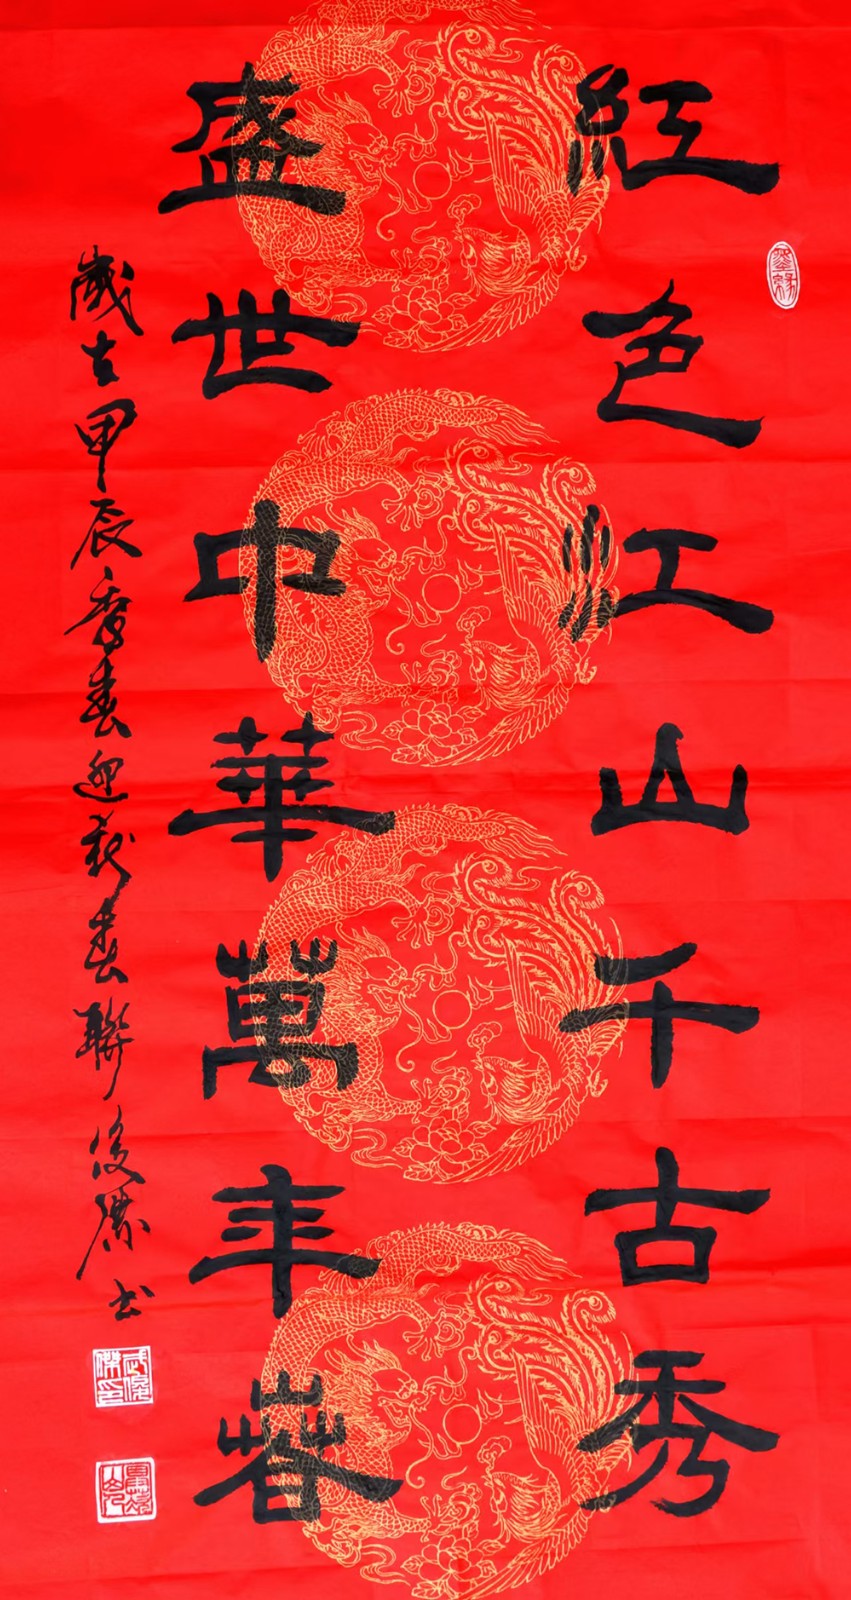 紅色江山千古秀
盛世中華萬年春
歲在甲辰春迎新春聯俊傑书
武俊傑印